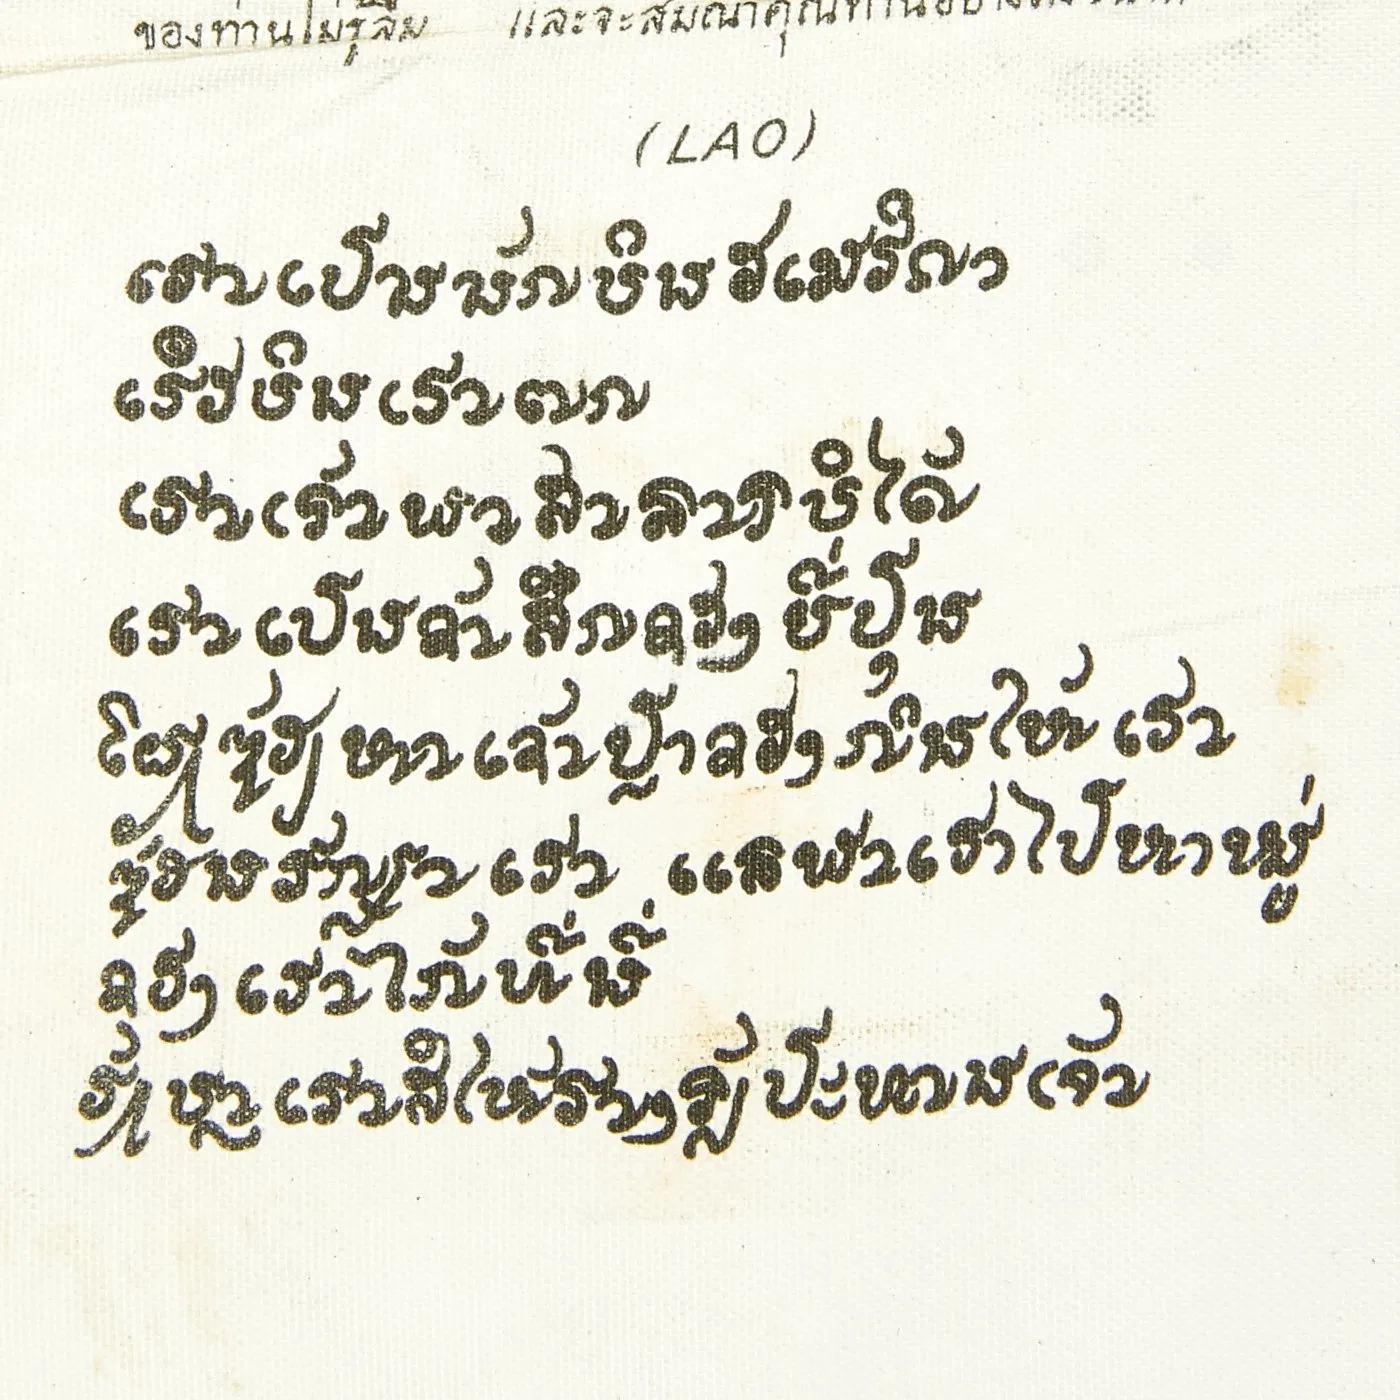 ของท่านไม่รู้ลืม และจะสมณาคุณท่านอย่าง
(LAO)
ເຮາ ເປັນ ນັກ ບິນ ອເມຣິກາ
ເຮືອບິນ ເຮາ ຕກ
ເຮາ ເຈົ້າ ພາສາລາວ ບໍໄດ້
ເຮາ ເປັນ ຂ້າສຶກ ຂອງ ຍີ່ປຸ່ນ
ຊ່ອຍ ຫາ ເຂົ້າ ປາ ຂອງ ກິນ ໃຫ້ ເຮາ
ເຮາ ແລ ພາ ເຮາ ໄປ ຫາ ໝູ່
ຂອງ ເຮາ ໃກ້ ທີ່ນີ້
ເຮາ ສິ ໃຫ້ ຮາງວັນ ປະທານ ເຈົ້າ